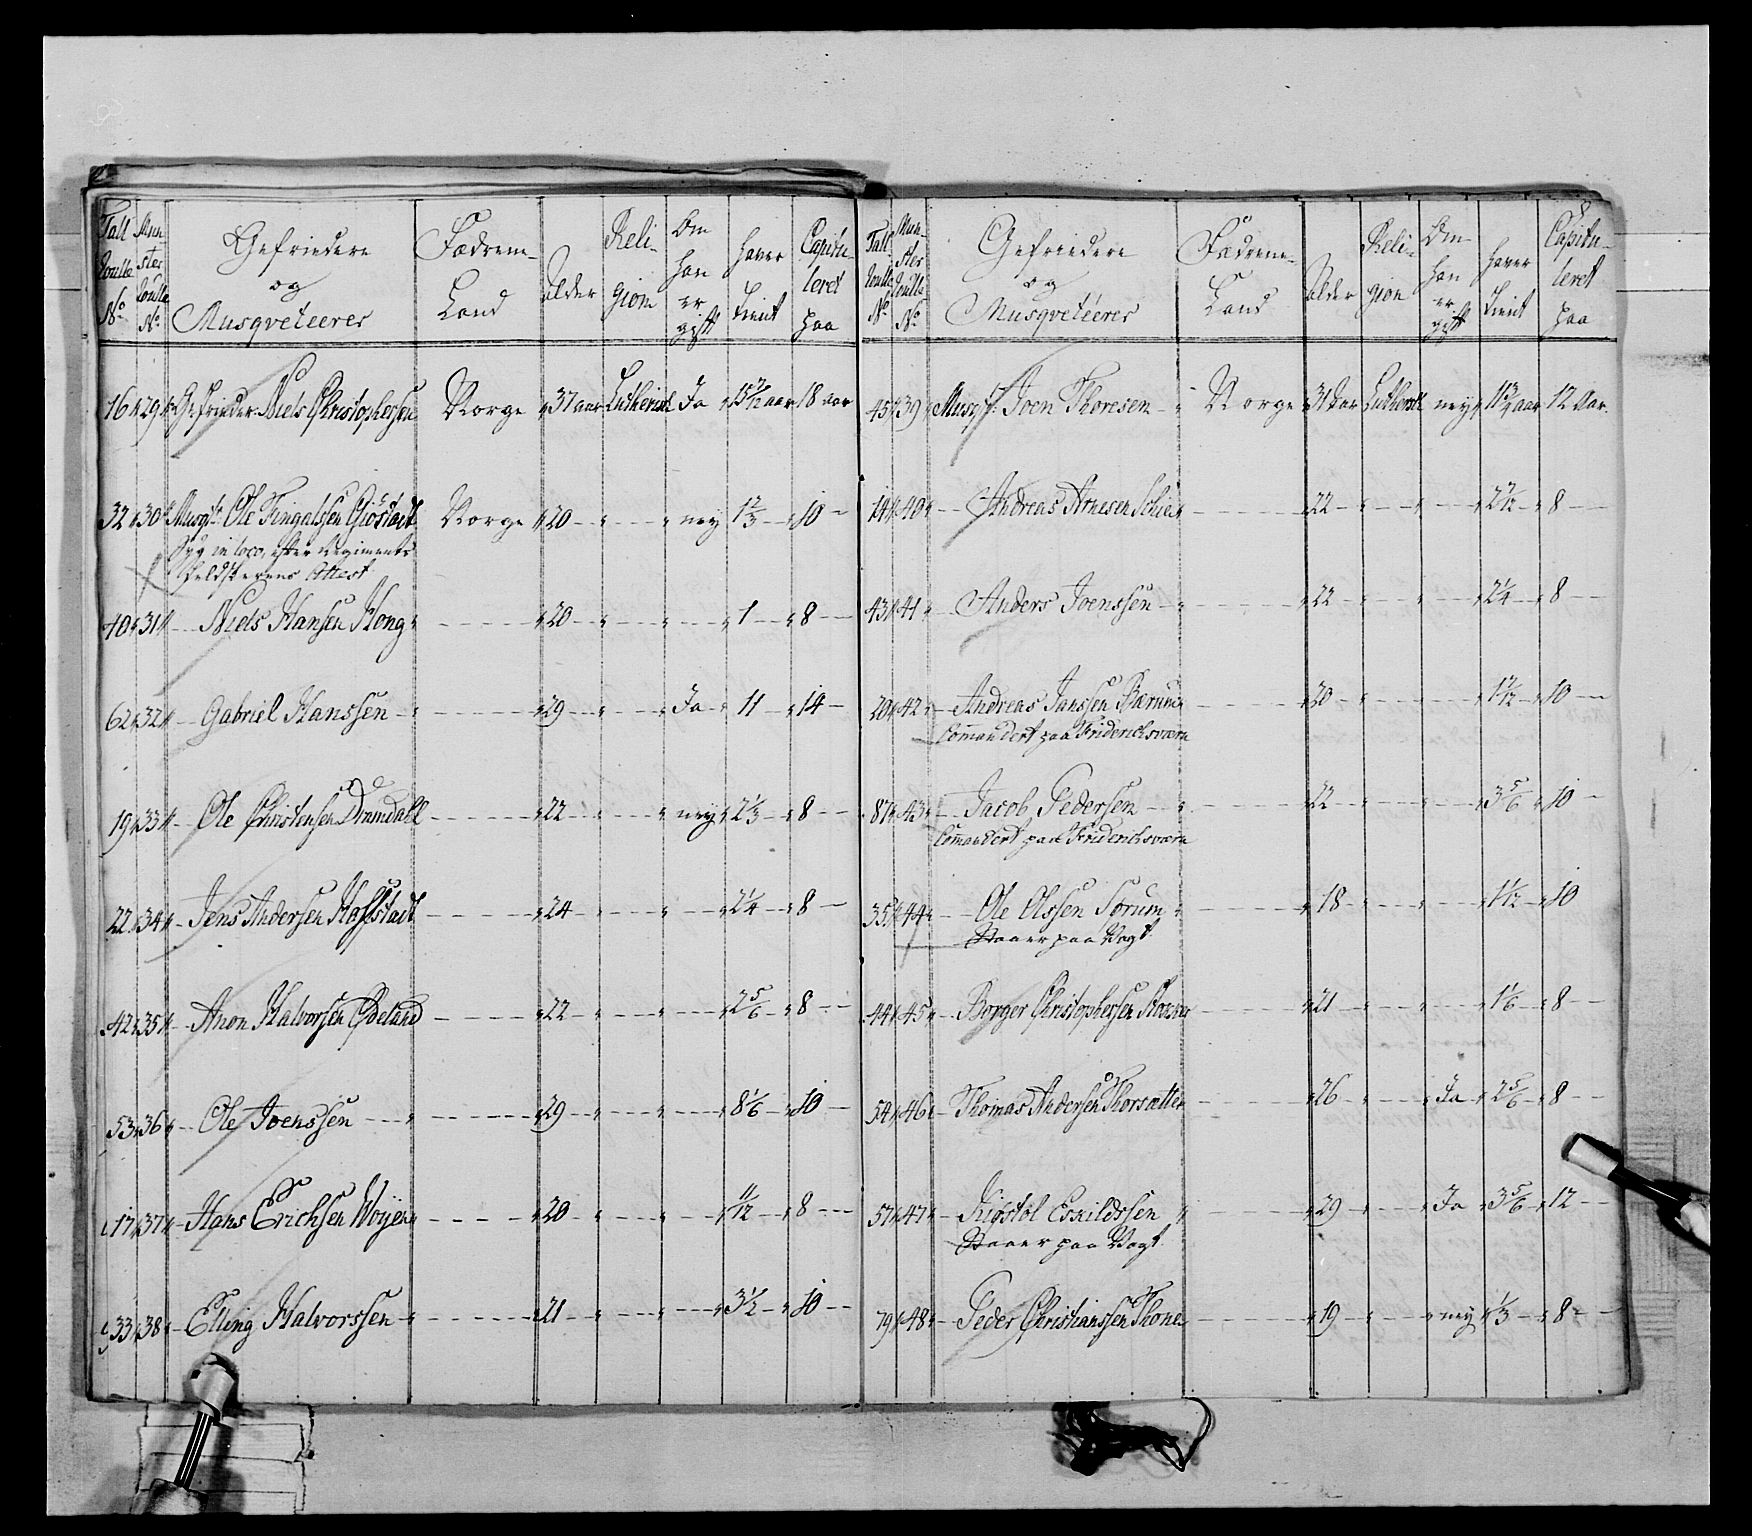 Tall Roulle No | Mun ster Roulle No | Gefriedere og Musqveteerer | Fædrene Land | Alder | Reli- gion | Om han er gift | haver tient | Capitu- leret paa
16 29 Gefrieder Niels Christophersen Norge 37 aar Luthersk Ja 15 7/12 aar 18 aar
32 30 Musqt: Ole Fingalssen Giöstad Norge 20 - - ney 1 2/3 10
Syg in loco, efter Regiments
Feldskerens Attest
40 31 Niels Hansen Hong - 20 - - - 1 8
62 32 Gabriel Hanssen - 29 - - Ja 11 14
19 33 Ole Christensen Dramdall - 22 - - ney 2 1/3 8
22 34 Jens Andersen Haffstad - 24 - - - 2 1/4 8
42 35 Anon Halvorsen Ödeland - 22 - - - 2 5/6 8
53 36 Ole Joenssen - 29 - - - 8 1/6 10
17 37 Hans Erichsen Woyen - 20 - - - 11/12 8
33 38 Elling Halvorssen - 21 - - - 3 1/2 10
Tall Roulle No | Mun- ster Roulle No | Gefriedere og Musqveteerer | Fædrene- Land | Alder | Reli- gion | Om- han er gift | haver tient | Capitu- leret paa
45 39 Musqt: Joen Thoresen - Norge 31 Aar Luthersk ney 11 3/4 aar 12 Aar.
14 40 Andreas Arnesen Schie - 22 - - - 2 7/12 8
43 41 Anders Joenssen - 22 - - - 2 1/4 8
20 42 Andreas Janssen Bærum - 20 - - - 1 7/12 10
Commandert paa Friderichsværn
87 43 Jacob Pedersen - 22 - - - 3 5/6 10
Commandert paa Friderichsværn
35 44 Ole Olssen Sørum - 18 - - - 1 1/12 10
Staaer paa Vagt
44 45 Borger Christophersen - 21 - - - 1 1/6 8
54 46 Thomas Andersen Thorsætter - 26 - - Ja 2 5/6 8
57 47 Kigstol Eskildssen - 29 - - Ja 3 5/6 12
Staaer paa Vagt
79 48 Peder Christianssen Thone - 19 - - ney 1/3 8